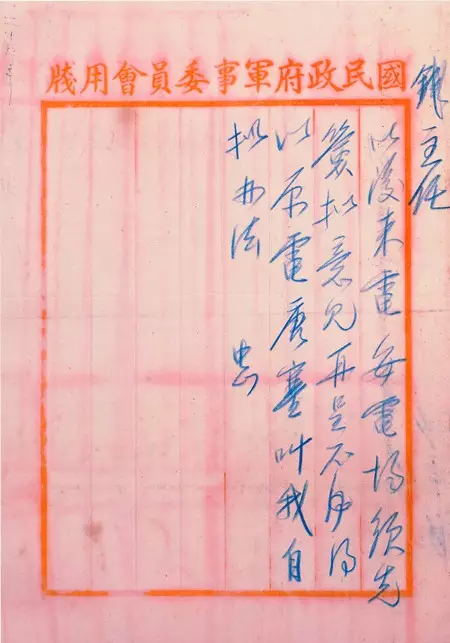 國民政府軍事委員會用牋
錢主任
以後來電每電均須先
簽擬意見再呈不得
以原電唐塞叫我自
擬办法 中正